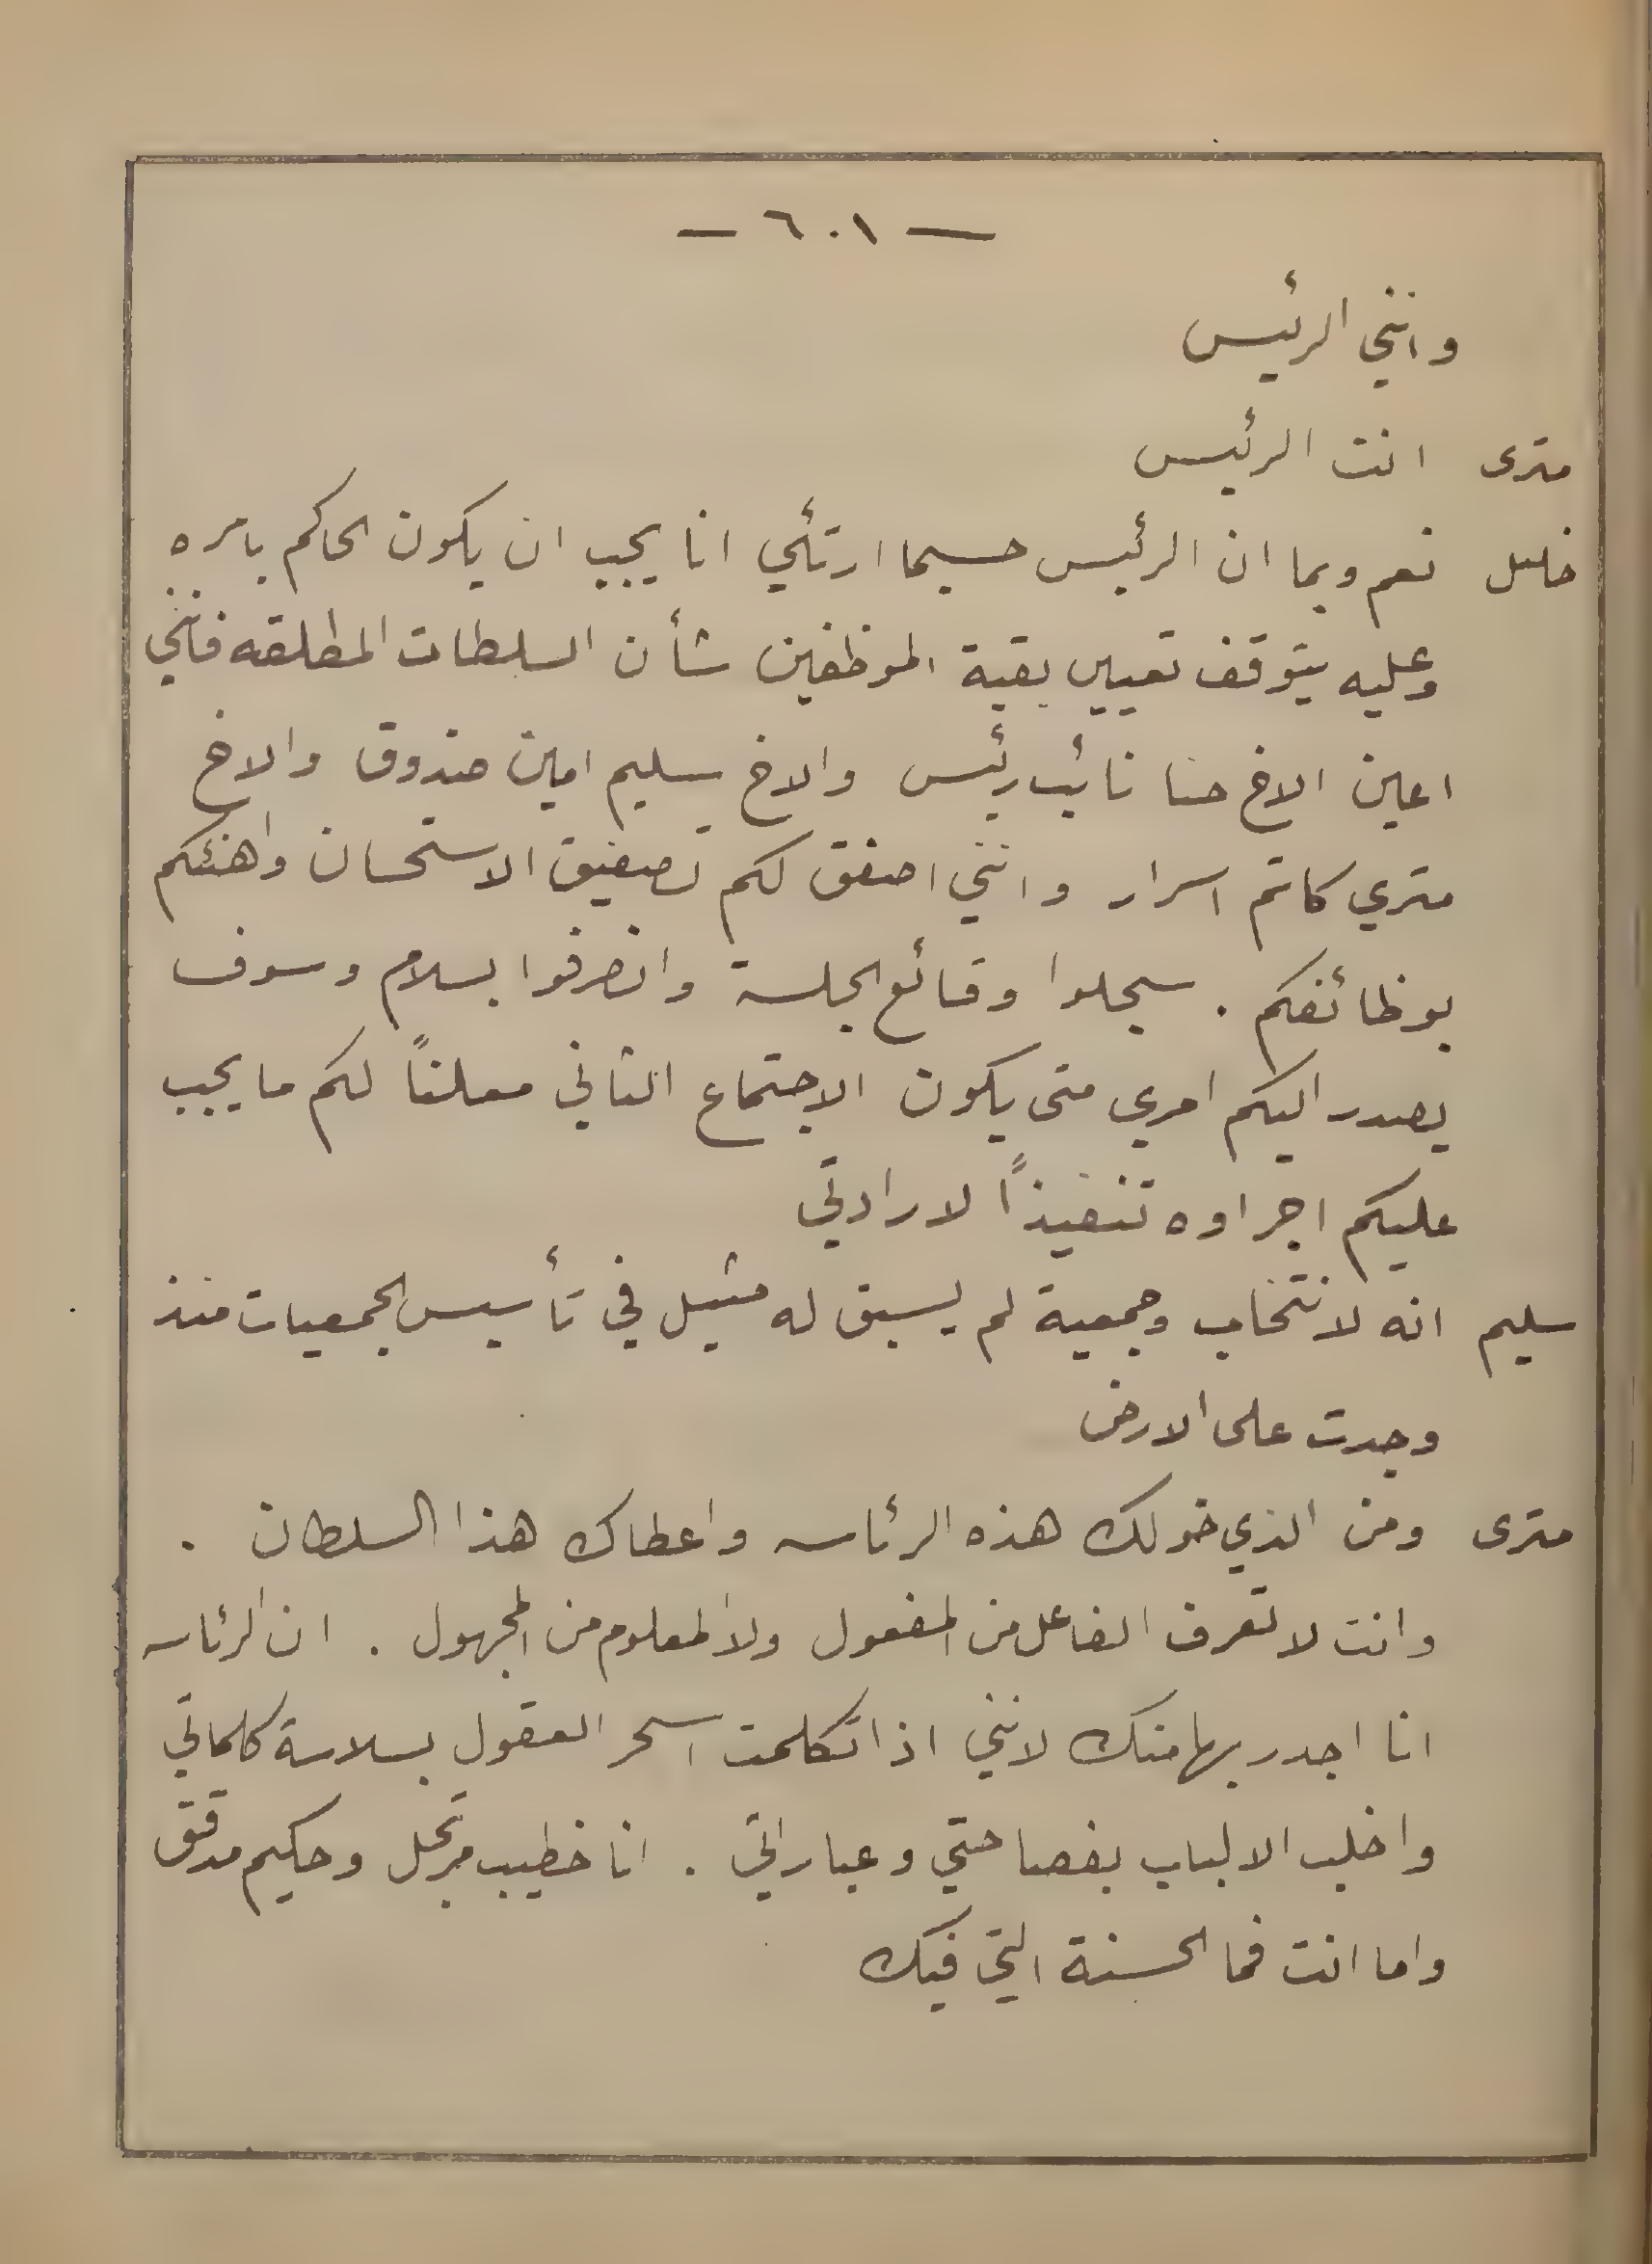 — ٦٠١ —
وانني الرئيس
مترى انت الرئيس
خليل نعم وبما ان الرئيس حسبما ارتأي انا يجب ان يكون الحاكم بامره
وعليه يتوقف تعيين بقية الموظفين شأن السلطات المطلقه فانني
اعين الاخ حنا نائب رئيس والاخ سليم امين صندوق والاخ
متري كاتم اسرار وانني اصفق لكم تصفيق الاستحسان واهنئكم
بوظائفكم . سجلوا وقائع الجلسة وانصرفوا بسلام وسوف
يصدر اليكم امري متى يكون الاجتماع الثاني معلناً لكم ما يجب
عليكم اجراوه تنفيذاً لارادتي
سليم انه لانتخاب وجمعية لم يسبق له مثيل في تأسيس الجمعيات منذ
وجدت على الارض
مترى ومن الذي خولك هذه الرئاسه واعطاك هذا السلطان .
وانت لا تعرف الفاعل من المفعول ولا المعلوم من المجهول . ان الرئاسه
انا اجدر بها منك لانني اذا تكلمت اسحر العقول بسلاسة كلماتي
واخلب الالباب بفصاحتي وعباراتي . انا خطيب مرتجل وحكيم مدقق
واما انت فما الحسنة التي فيك